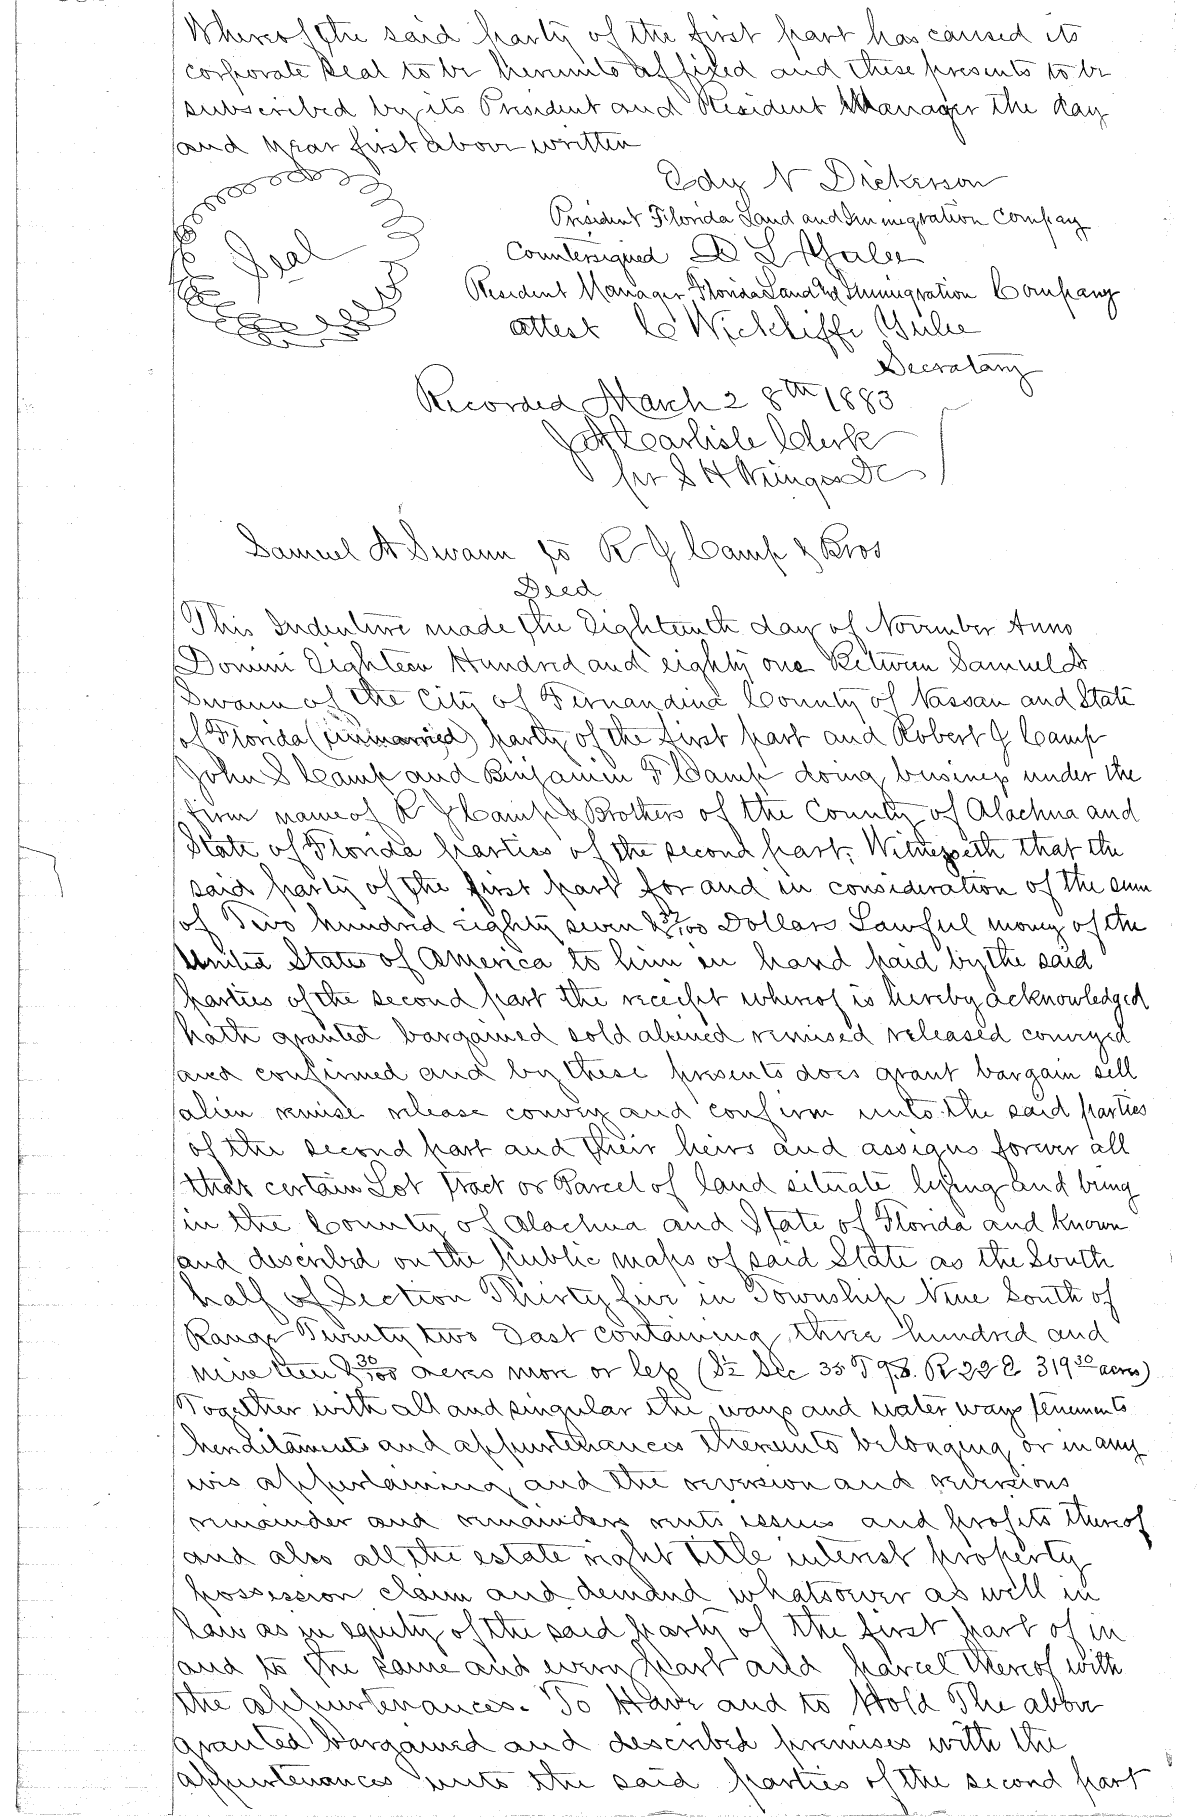 Whereof the said party of the first part has caused its
corporate seal to be hereunto affixed and these presents to be
subscribed by its President and Resident Manager the day
and year first above written
Seal
Edw N Dickerson
President Florida Land and Immigration Company
Countersigned D L Yulee
Resident Manager Florida Land and Immigration Company
attest C Wickliffe Yulee
Secratary
Recorded March 28th 1883
J A Carlisle Clerk
per S H Wienges DC
Samuel A Swann to R J Camp & Bros
Deed
This Indenture made the Eighteenth day of November Anno
Domini Eighteen Hundred and eighty one Between Samuel A
Swann of the City of Fernandina County of Nassau and State
of Florida (unmarried) party of the first part and Robert J Camp
John S Camp and Benjamin F Camp doing business under the
firm name of R J Camp & Brothers of the County of Alachua and
State of Florida parties of the second part, Witnesseth that the
said party of the first part for and in consideration of the sum
of Two hundred eighty seven & 37/100 Dollars Lawful money of the
United States of America to him in hand paid by the said
parties of the second part the receipt whereof is hereby acknowledged
hath granted bargained sold aliened remised released conveyed
and confirmed and by these presents does grant bargain sell
alien remise release convey and confirm unto the said parties
of the second part and their heirs and assigns forever all
that certain Lot Tract or Parcel of land situate lying and being
in the County of Alachua and State of Florida and known
and described on the public maps of said State as the South
half of Section Thirty five in Township Nine South of
Range Twenty two East containing three hundred and
nineteen & 30/100 acres more or less (S½ Sec 35 T 9.S. R 22 E 319 30 acres)
Together with all and singular the ways and water ways tenements
hereditaments and appurtenances thereunto belonging or in any
wis appertaining and the reversion and reversions
remainder and remainders rents issues and profits thereof
and also all the estate right title interest property
possession claim and demand whatsoever as well in
law as in equity of the said party of the first part of in
and to the same and every part and parcel thereof with
the appurtenances. To Have and to Hold The above
granted bargained and described premises with the
appurtenances unto the said parties of the second part